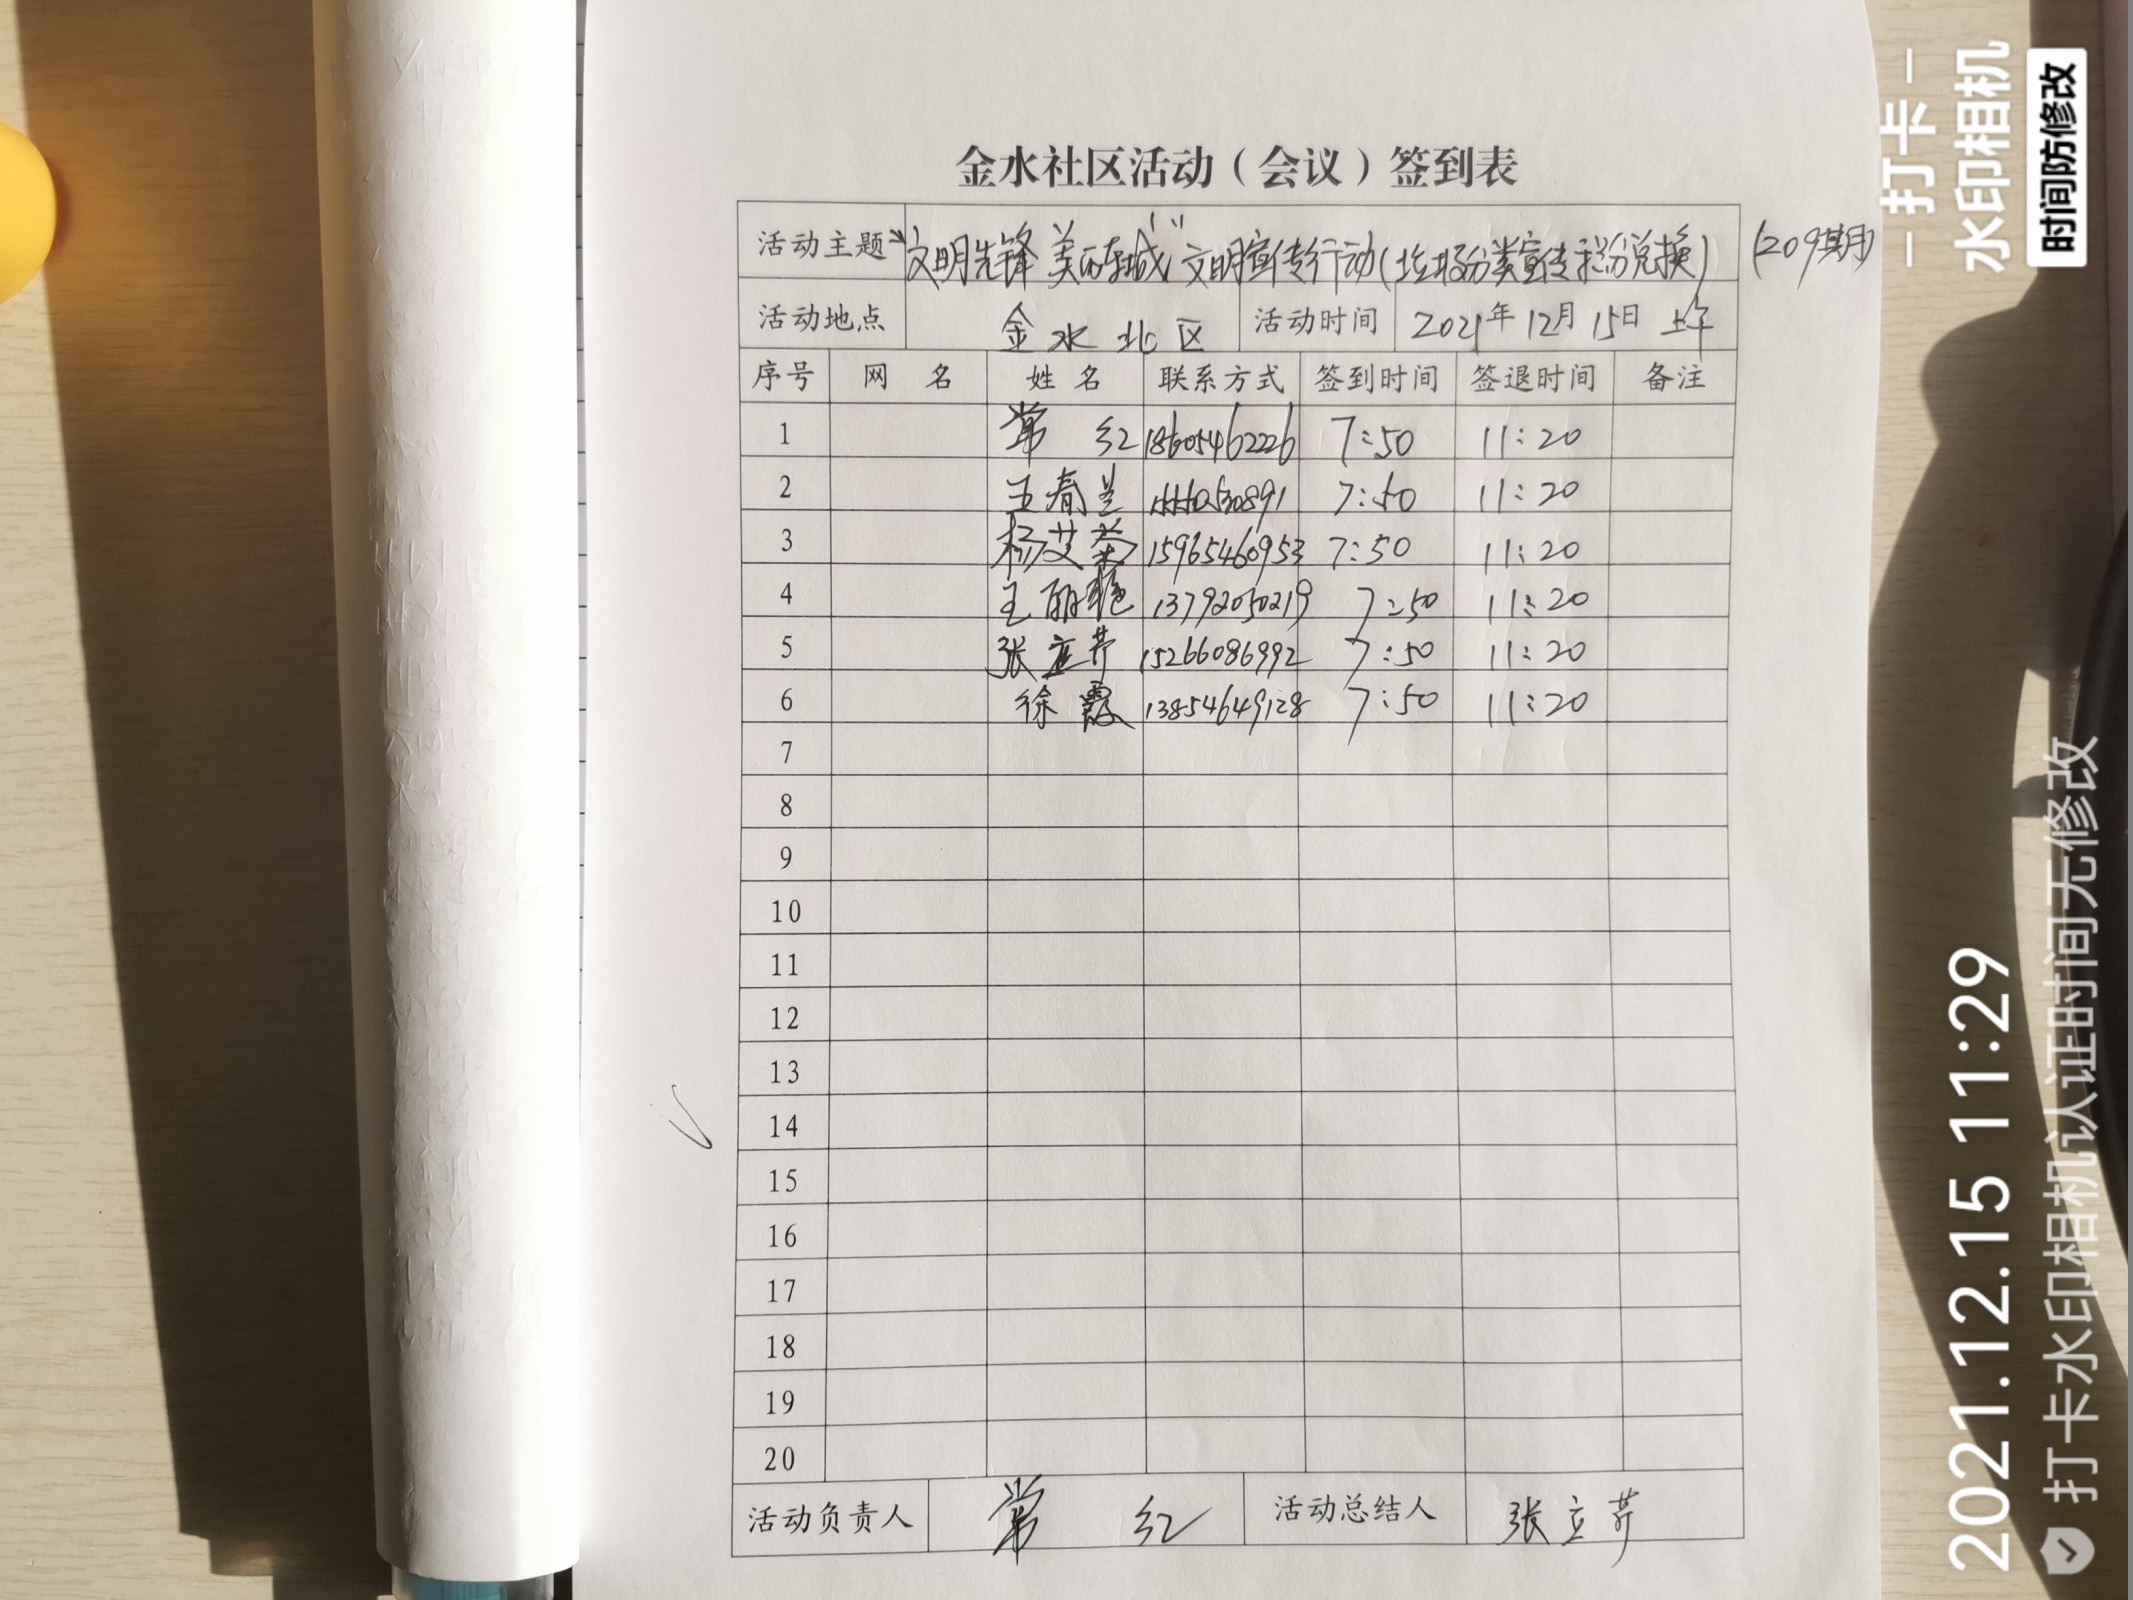 金水社区活动（会议）签到表
活动主题 "文明先锋 美丽东城" 文明宣传行动(垃圾分类宣传积分兑换) (209期)
活动地点 金水北区 活动时间 2021年12月15日 上午
序号 网 名 姓 名 联系方式 签到时间 签退时间 备注
1 常 红 18605462226 7:50 11:20
2 王春兰 7:50 11:20
3 杨艾荣 15965460953 7:50 11:20
4 王丽艳 13792050219 7:50 11:20
5 张立芹 15266086992 7:50 11:20
6 徐霞 13854649128 7:50 11:20
7
8
9
10
11
12
13
14
15
16
17
18
19
20
活动负责人 常 红 活动总结人 张立芹
打卡
水印相机
时间防修改
2021.12.15 11:29
打卡水印相机认证时间无修改